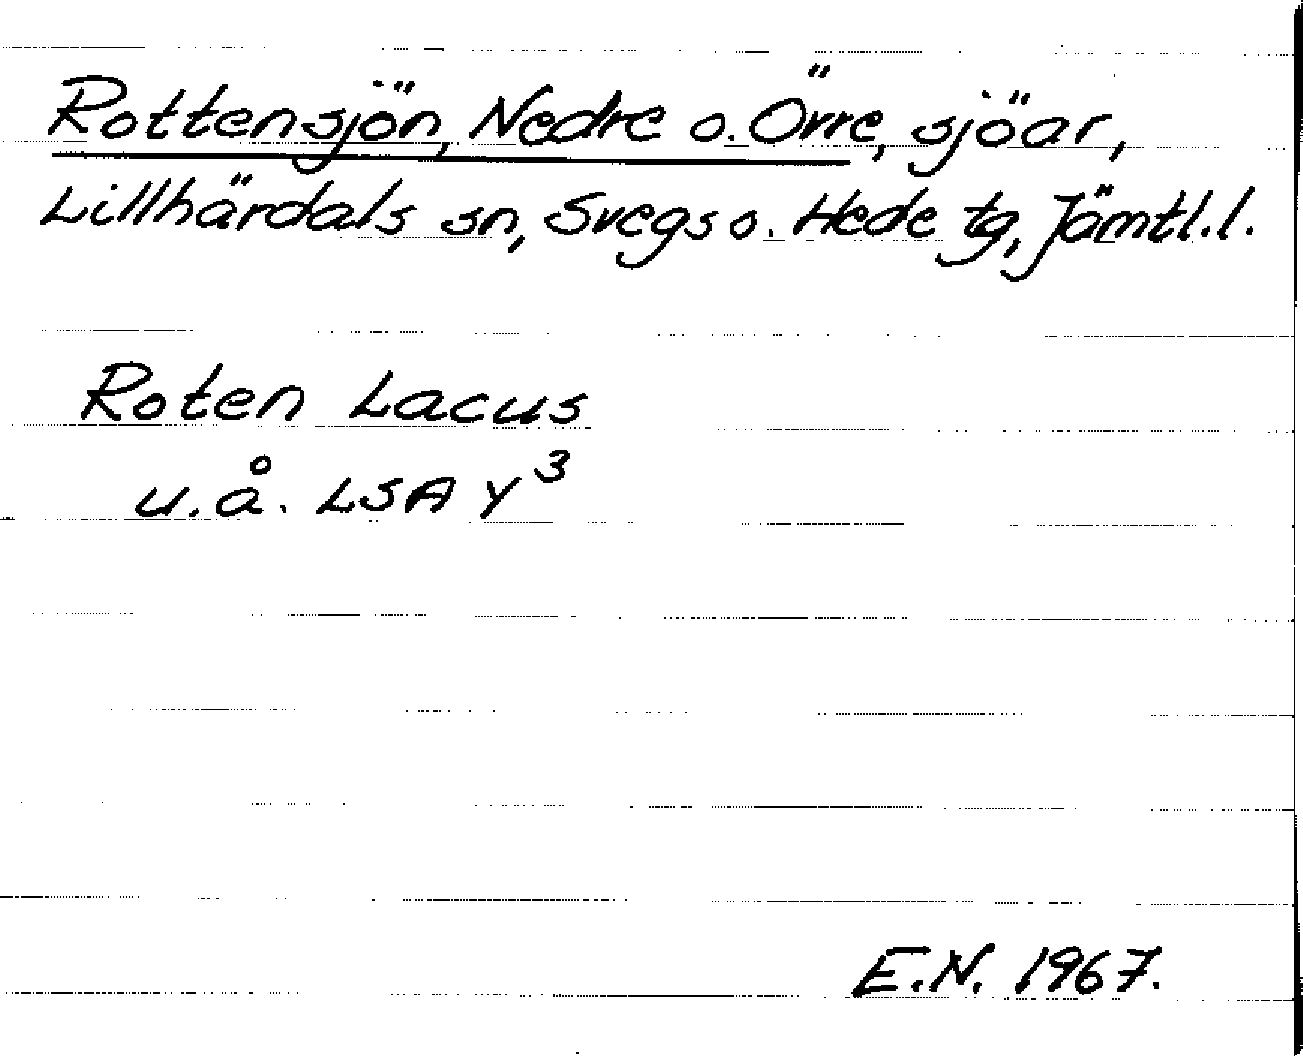 Rottensjön, Nedre o. Övre, sjöar,
Lillhärdals sn, Svegs o. Hede tg, Jämtl.l.
Roten Lacus
u.å. LSA Y³
E.N. 1967.